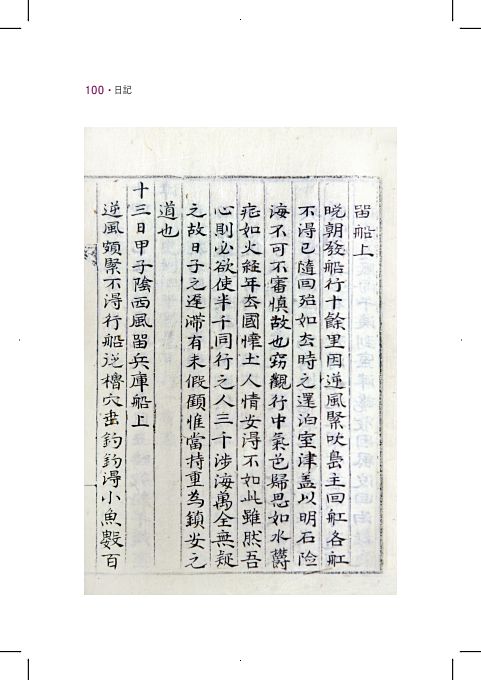 100・日記
留船上
晩朝發船行十餘里因逆風緊吹島主回舡各舡
不得已隨回殆如去時之還泊室津盖以明石險
海不可不審慎故也窃觀行中氣色歸思如水欝
症如火經年去國懷土人情安得不如此雖然吾
心則必欲使半千同行之人三十涉海萬全無疑
之故日子之遲滯有未假顧惟當持重為鎮安之
道也
十三日甲子陰西風留兵庫船上
逆風頗緊不得行船從櫓穴垂釣釣得小魚數百